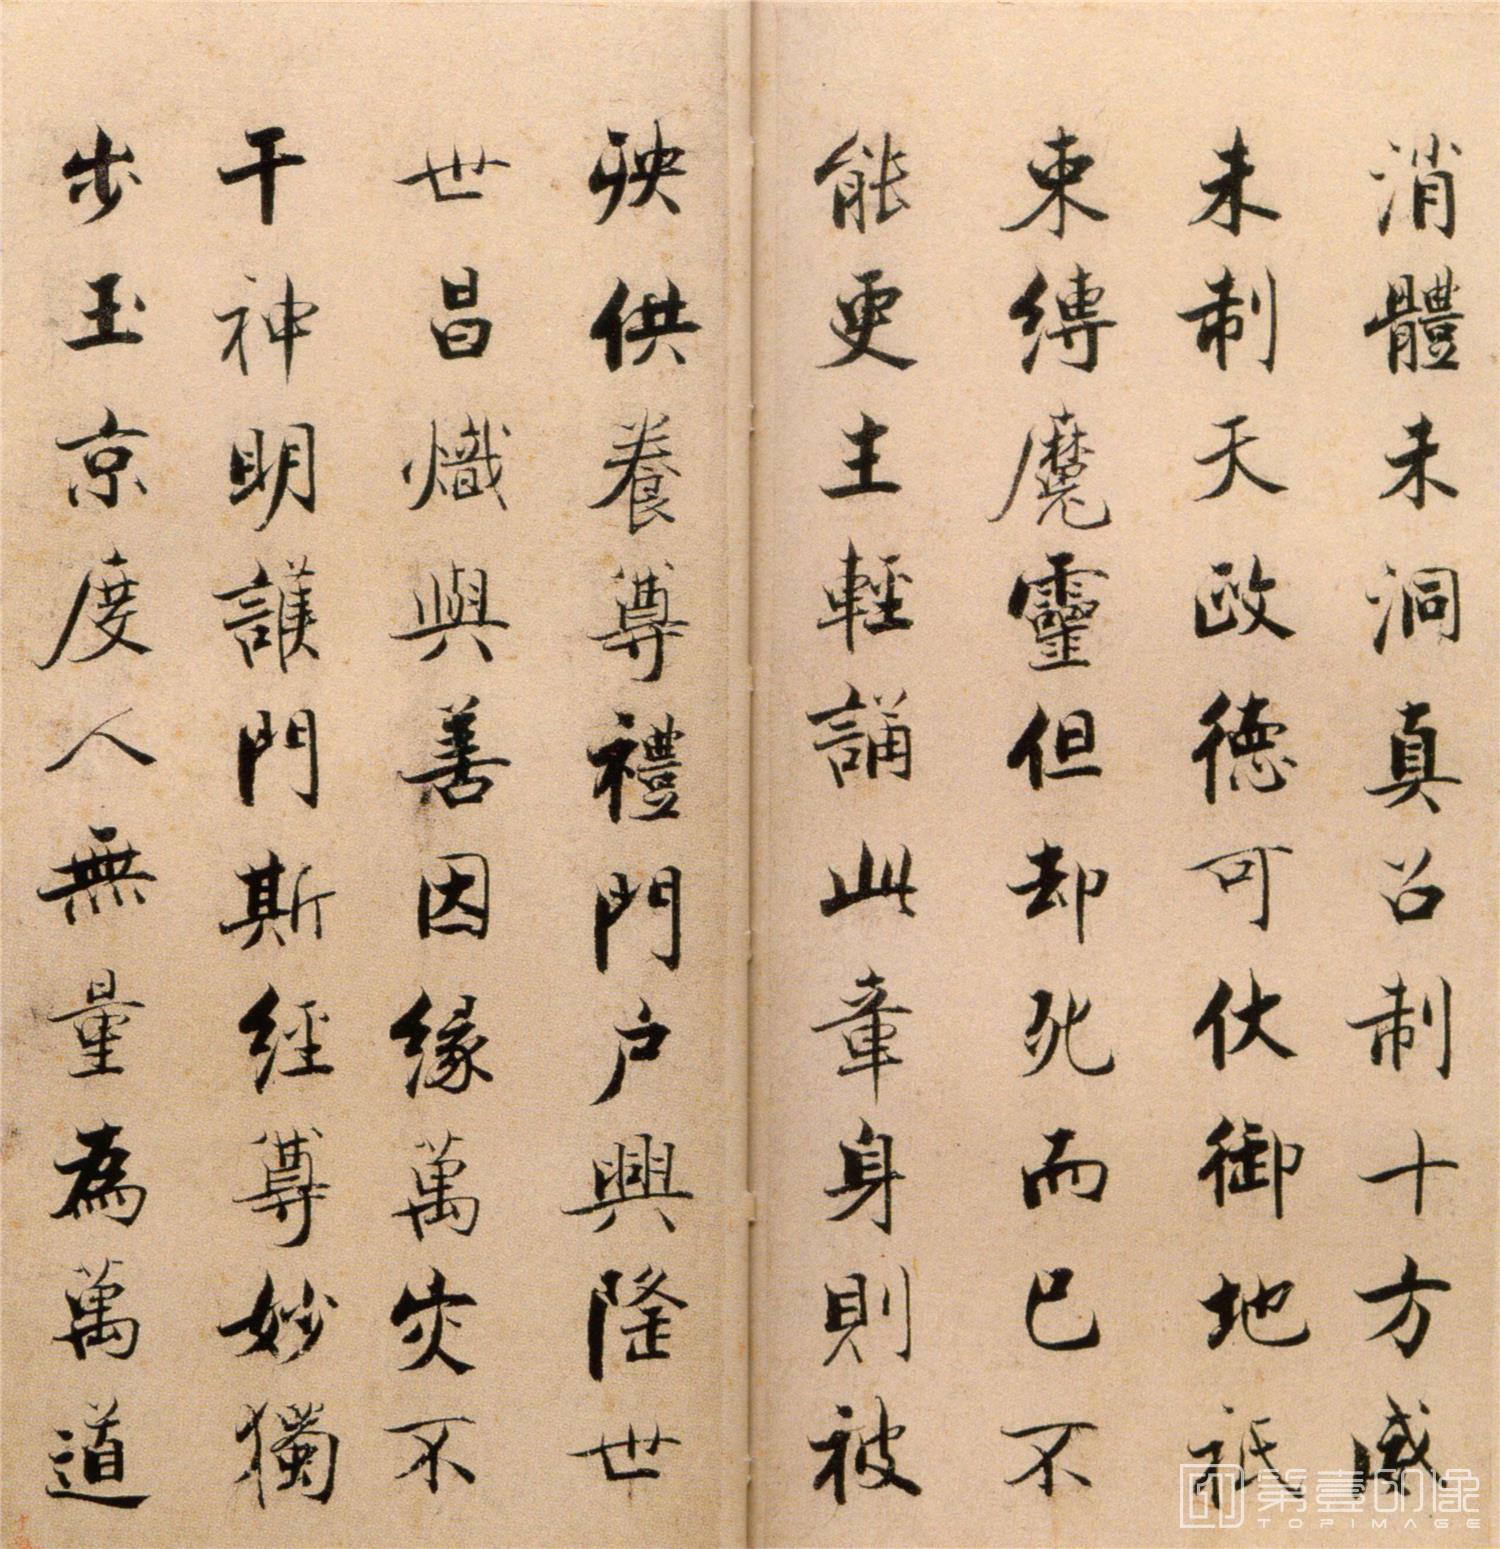 消體未洞真召制十方威
未制天政德可伏御地祇
束縛魔靈但却死而已不
能更主輕誦此章身則被
殃供養尊禮門户興隆世
世昌熾與善因緣萬灾不
干神明護門斯經尊妙獨
步玉京度人無量為萬道
第壹印像
TOPIMAGE